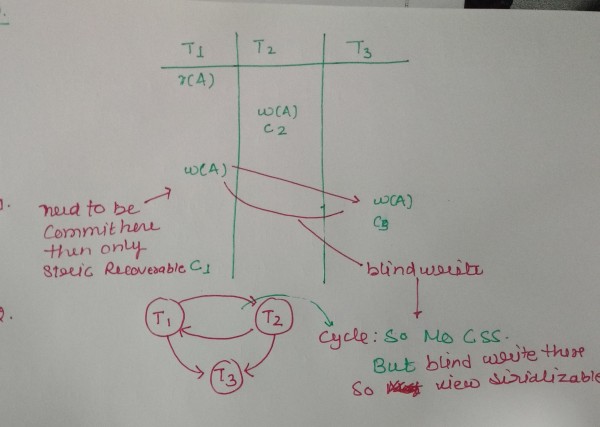 T1 T2 T3
r(A)
w(A)
C2
w(A)
w(A)
C3
1.
need to be
Commit here
then only
Steric Recoverable C1
blind write
2.
T1 T2
T3
Cycle: So No CSS.
But blind write there
So view sirializable